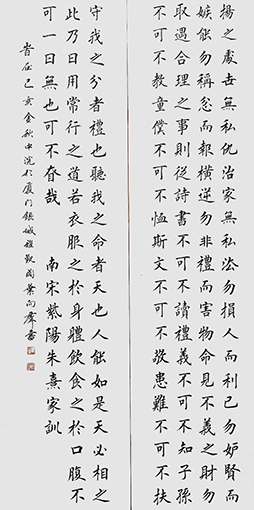 揚之處世無私仇治家無私法勿損人而利己勿妒賢而
嫉能勿稱忿而報橫逆勿非禮而害物命見不義之財勿
取遇合理之事則從詩書不可不讀禮義不可不知子孫
不可不教童僕不可不恤斯文不可不敬患難不可不扶
守我之分者禮也聽我之命者天也人能如是天必相之
此乃日用常行之道若衣服之於身體飲食之於口腹不
可一日無也可不昚哉 南宋紫陽朱熹家訓
己亥金秋中浣於廈门銀城雅葉向群書